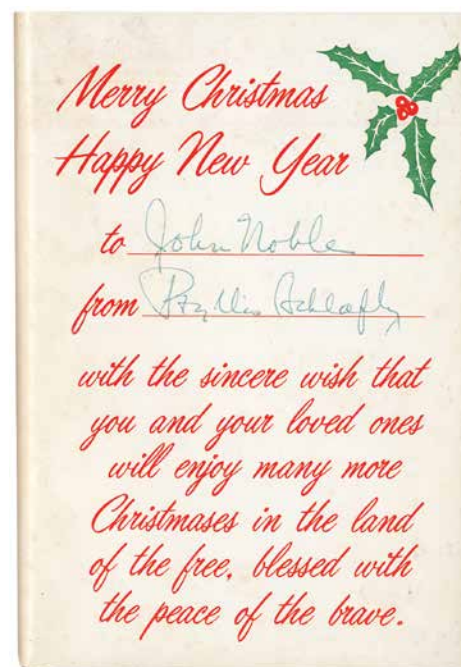 Merry Christmas
Happy New Year
to John Noble
from Phyllis Schlafly
with the sincere wish that
you and your loved ones
will enjoy many more
Christmases in the land
of the free, blessed with
the peace of the brave.